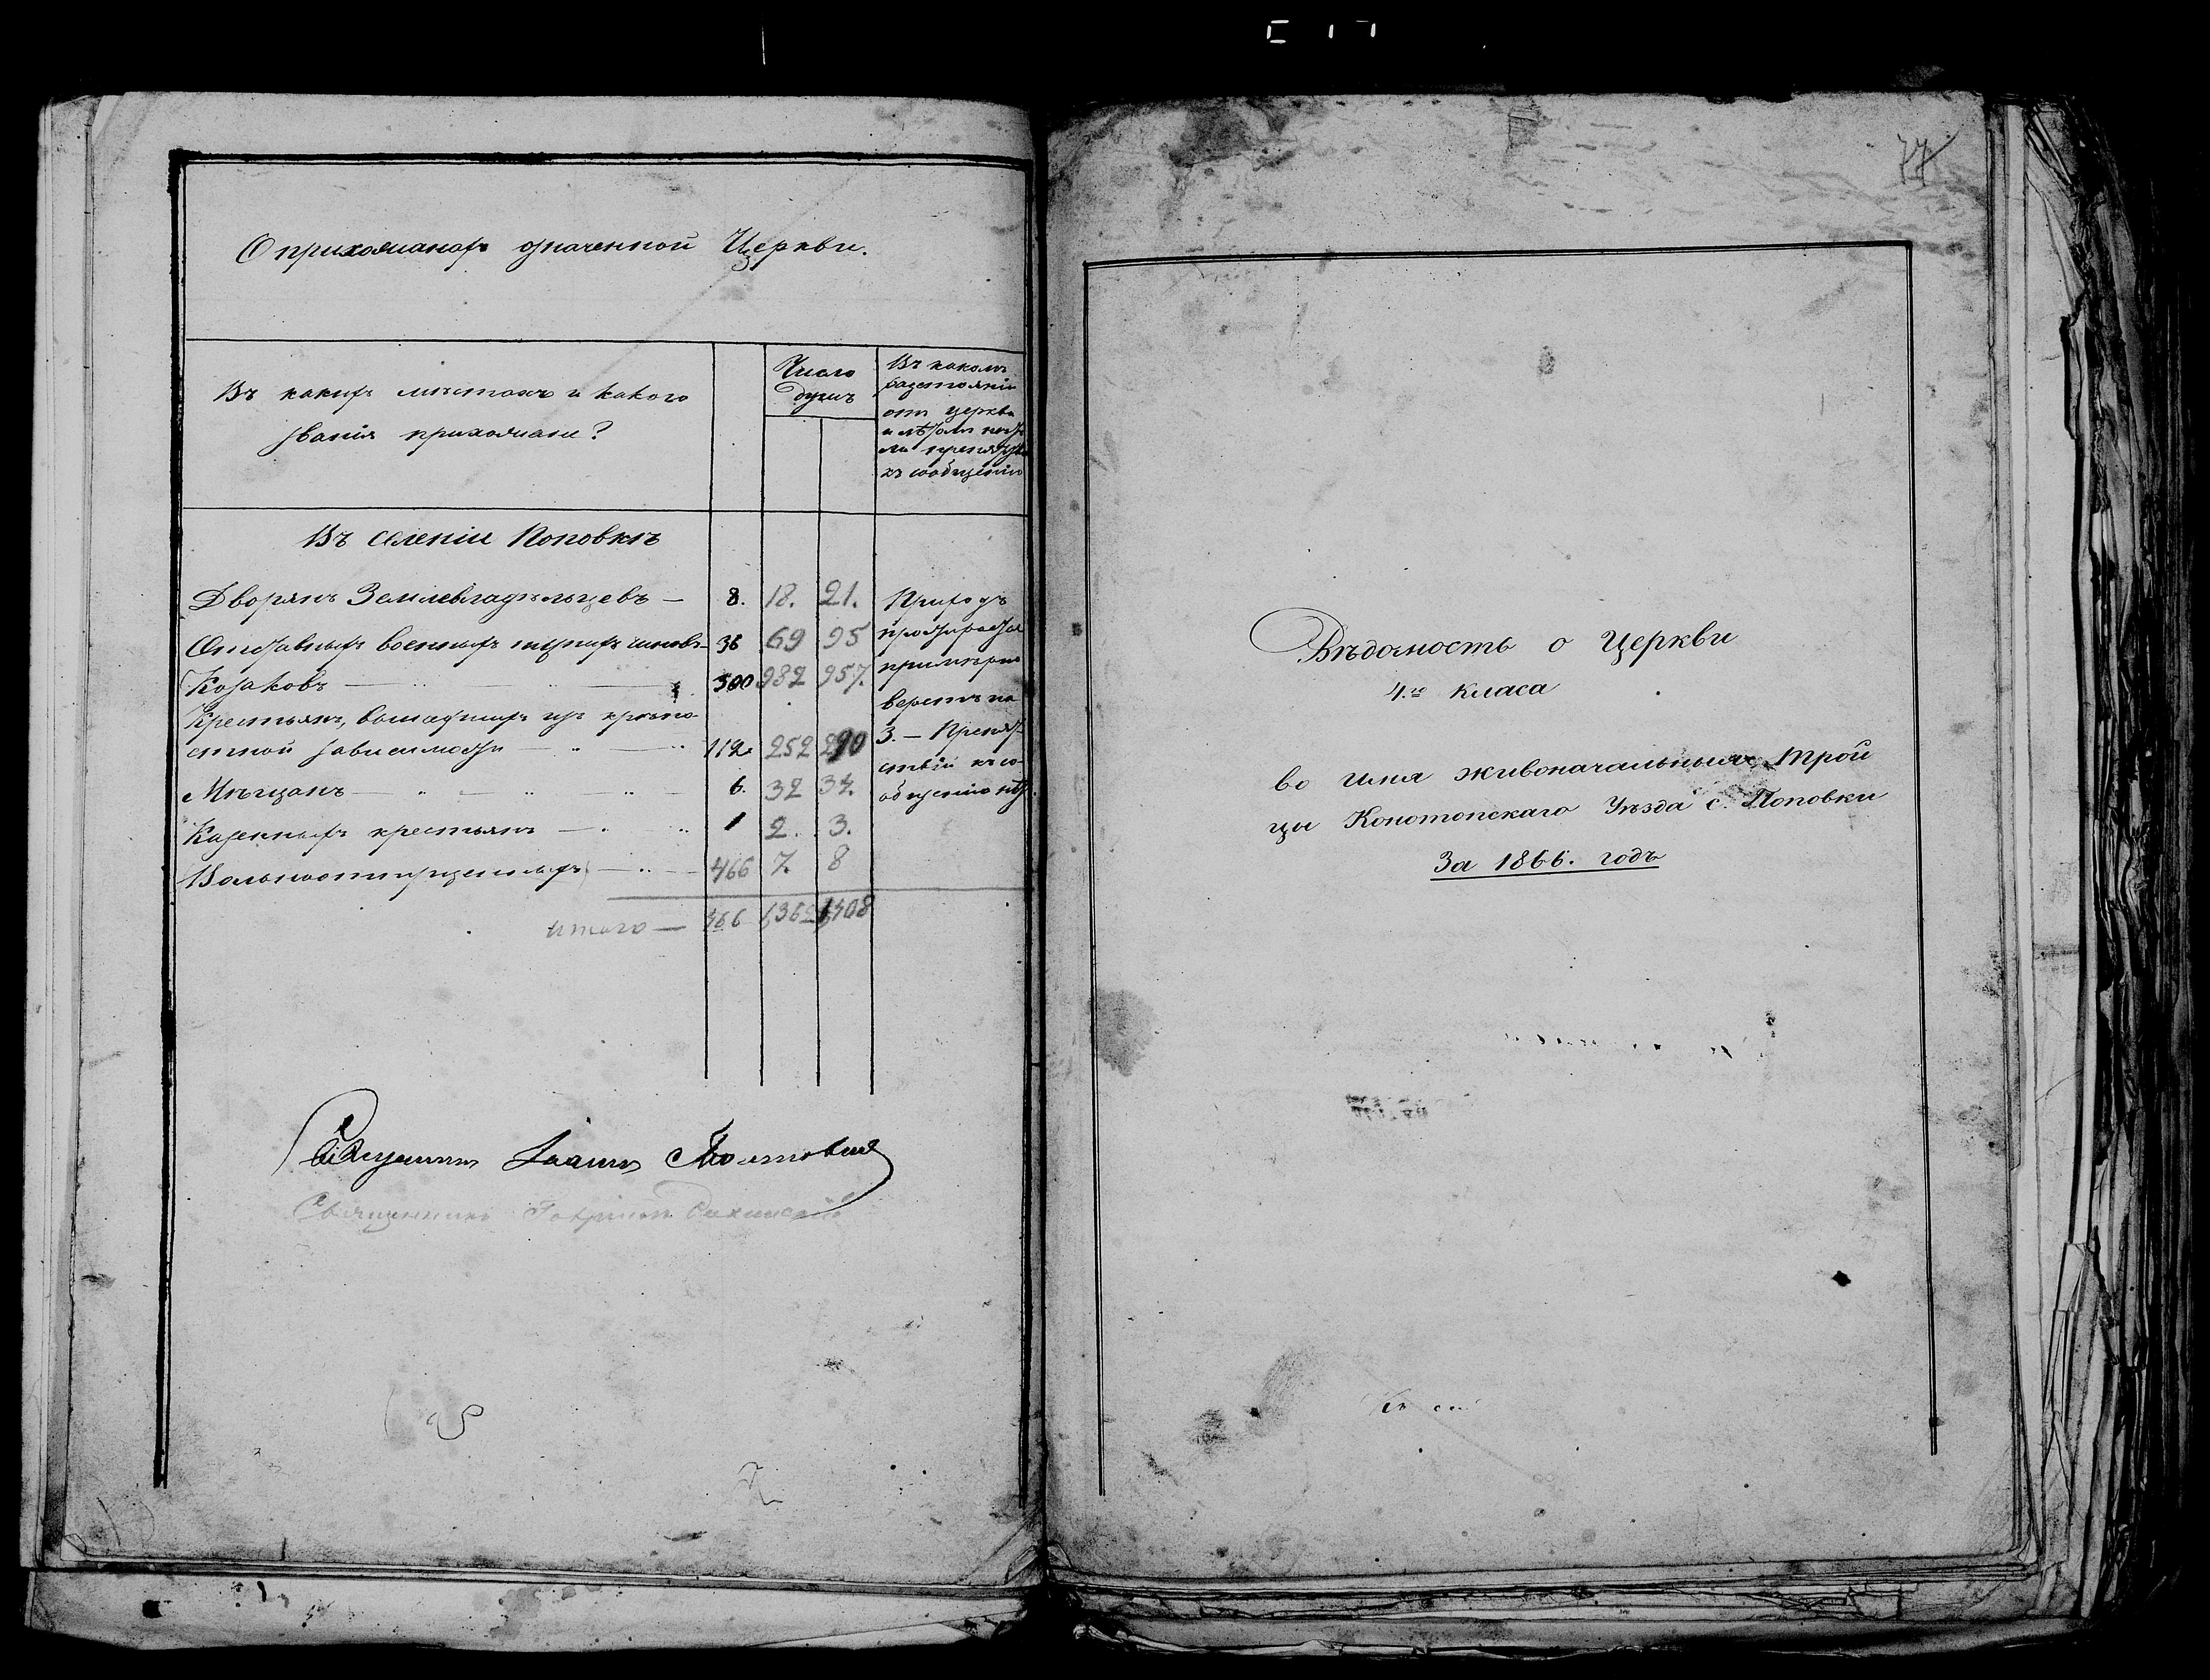 О прихожанахъ означенной Церкви.
Въ какихъ мѣстахъ и какого
званія прихожане?
Число
душъ
Въ какомъ
разстояніи
отъ церкви
и нѣтъ ли
ли препятств
къ сообщенію
Въ селеніи Поповкѣ
Дворянъ Землевладѣльцевъ — 8. 18. 21.
Отставныхъ военныхъ нижнихъ чиновъ 36 69 95
Козаковъ — 300 982 957.
Крестьянъ, вышедшихъ изъ крѣпо-
стной зависимости — 112. 252 290
Мѣщанъ — 6. 32 34.
Казенныхъ крестьянъ — 1 2. 3.
Вольноотпущенныхъ — 466 7. 8
итого — 466 1362 1408
Приходъ
простирается
примѣрно
верстъ на
3. — Препят-
ствій къ со-
общенію нѣтъ.
Священникъ Іоаннъ
Священникъ Гавріилъ
77
Вѣдомость о Церкви
4.го класа
во имя живоначальныя Трой
цы Конотопскаго Уѣзда с. Поповки
За 1866. годъ